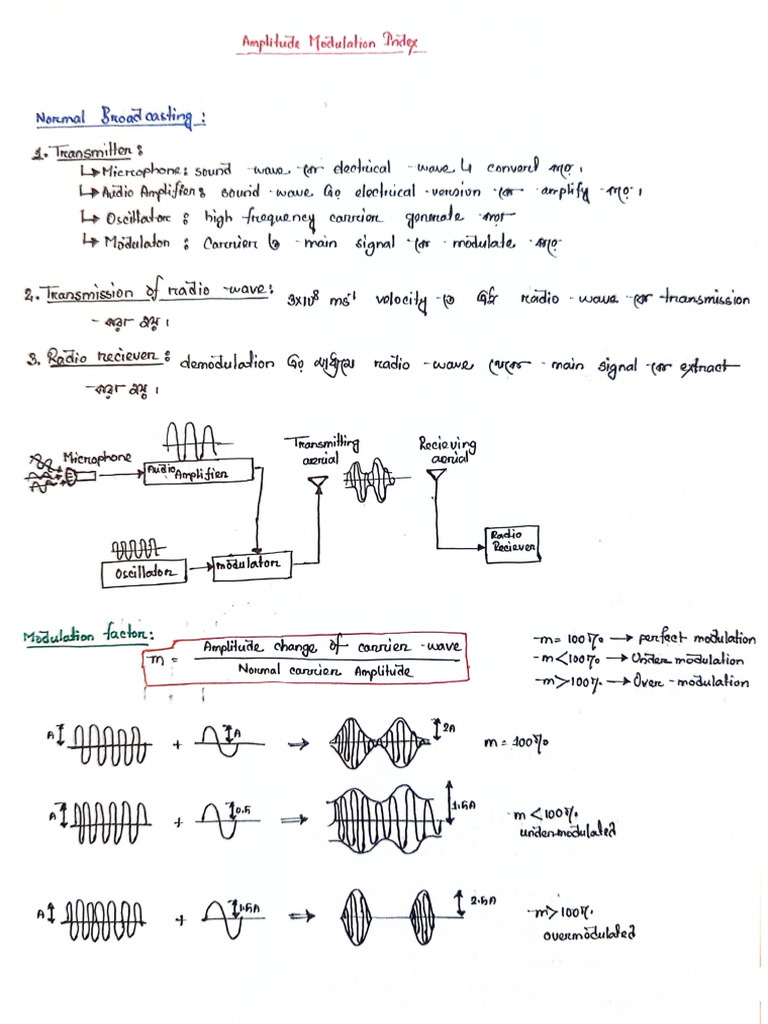 Amplitude Modulation Index
Normal Broadcasting:
1. Transmitter:
↳ Microphone: sound wave কে electrical wave এ convert করে।
↳ Audio Amplifier: sound wave এর electrical version কে amplify করে।
↳ Oscillator: high frequency carrier generate করে
↳ Modulator: Carrier ও main signal কে modulate করে
2. Transmission of radio wave: 3x10⁸ ms⁻¹ velocity তে এই radio wave কে transmission
করা হয়।
3. Radio reciever: demodulation এর মাধ্যমে radio wave থেকে main signal কে extract
করা হয়।
Microphone
Audio Amplifier
Transmitting
aerial
Recieving
aerial
Oscillator
modulator
Radio
Reciever
Modulation factor:
m = Amplitude change of carrier wave
Normal carrier Amplitude
m = 100% → perfect modulation
m < 100% → Under modulation
m > 100% → Over-modulation
A + A ⇒ 2A m = 100%
A + 0.5 ⇒ 1.5A m < 100%
undermodulated
A + 1.5A ⇒ 2.5A m > 100%
overmodulated